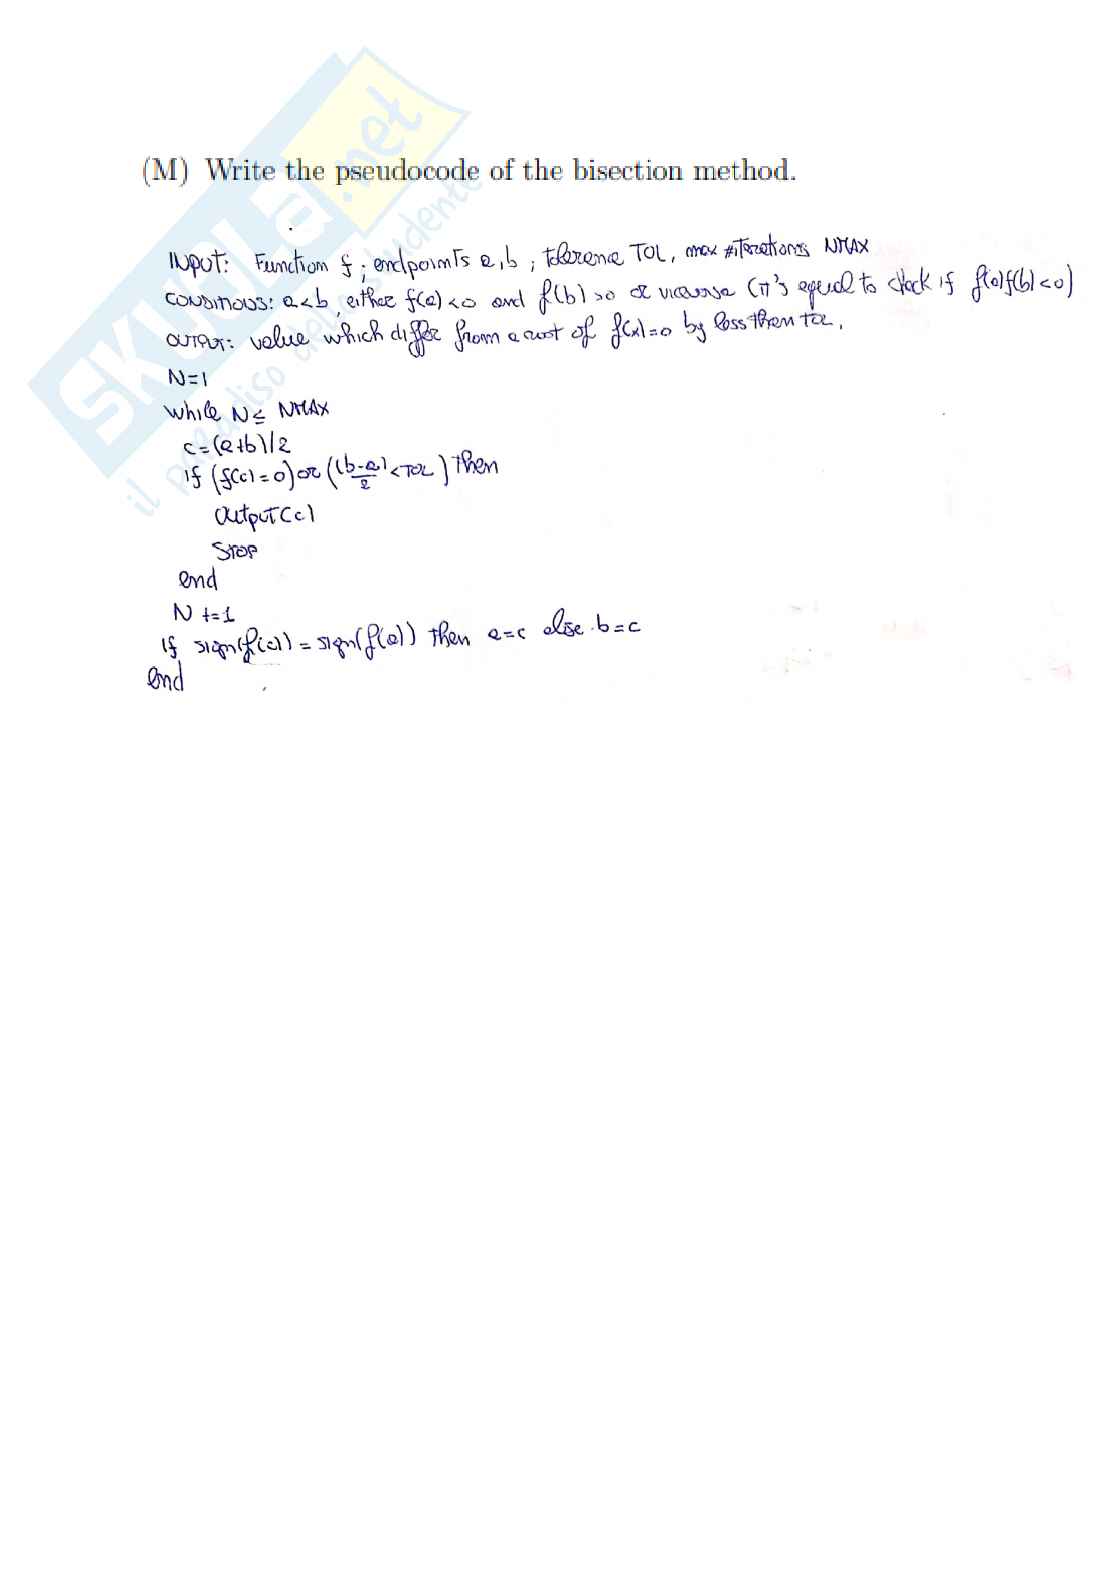 SKUOLA.net
il paradiso dello studente
(M) Write the pseudocode of the bisection method.
INPUT: Function f; endpoints a,b; tolerance TOL, max #iterations NMAX
CONDITIONS: a<b, either f(a)<0 and f(b)>0 or viceversa (it's equal to check if f(a)f(b)<0)
OUTPUT: value which differ from a root of f(x)=0 by less then TOL.
N=1
while N≤ NMAX
c=(a+b)/2
If (f(c)=0) or ((b-a)/2 <TOL) then
Output(c)
Stop
end
N+=1
If sign(f(c)) = sign(f(a)) then a=c else b=c
end